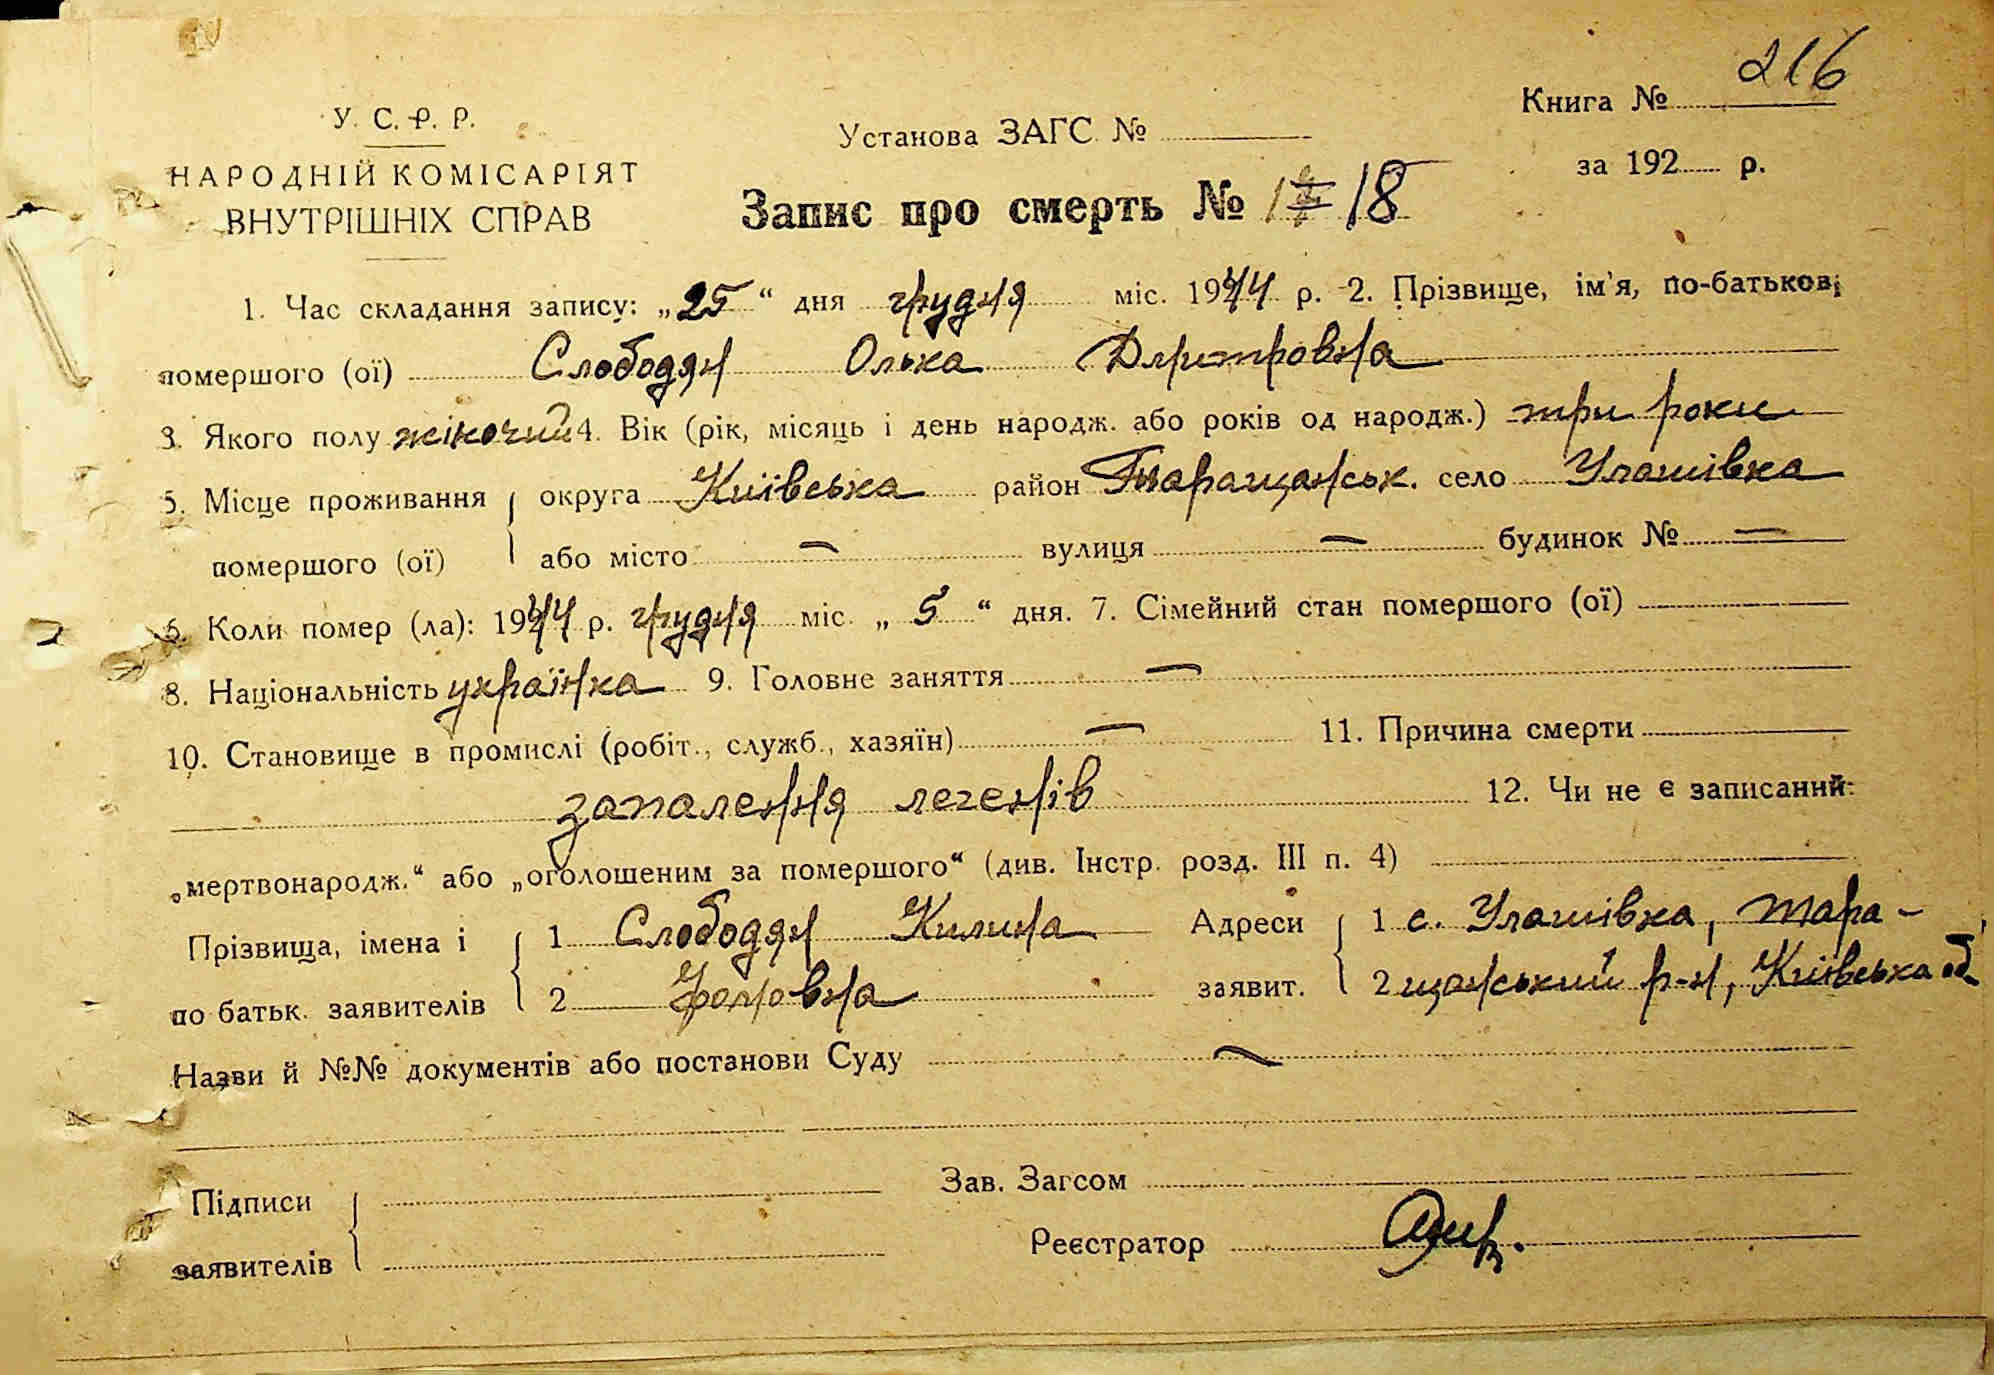 216
Книга №
У. С. Р. Р.
Установа ЗАГС №
за 192 р.
НАРОДНІЙ КОМІСАРІЯТ
ВНУТРІШНІХ СПРАВ
Запис про смерть № 18
1. Час складання запису: „25“ дня грудня міс. 1944 р. 2. Прізвище, ім'я, по-батькові
помершого (ої) Слободян Олька Дмитровна
3. Якого полу жіночий 4. Вік (рік, місяць і день народж. або років од народж.) три роки
5. Місце проживання округа Київська район Таращанськ. село Улашівка
помершого (ої) або місто — вулиця — будинок № —
6. Коли помер (ла): 1944 р. грудня міс. „5“ дня. 7. Сімейний стан помершого (ої)
8. Національність українка 9. Головне заняття —
10. Становище в промислі (робіт., служб., хазяїн) — 11. Причина смерти
запалення легенів 12. Чи не є записаний:
„мертвонародж.“ або „оголошеним за помершого“ (див. Інстр. розд. III п. 4)
Прізвища, імена і 1 Слободян Килина Адреси 1 с. Улашівка, Тара-
по батьк. заявителів 2 Фомовна заявит. 2 щанський р-н, Київська об
Назви й №№ документів або постанови Суду —
Підписи Зав. Загсом
заявителів Реєстратор